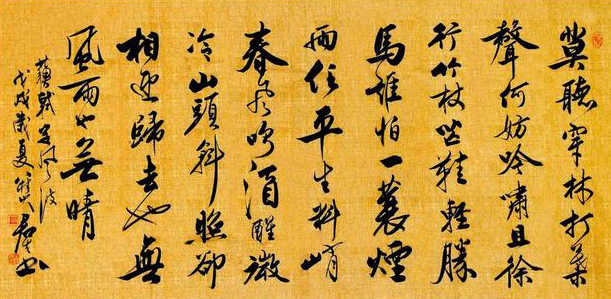 莫聽穿林打葉
聲何妨吟嘯且徐
行竹杖芒鞋輕勝
馬誰怕一蓑煙
雨任平生料峭
春風吹酒醒微
冷山頭斜照卻
相迎歸去也無
風雨也無晴
蘇軾定風波
戊戌歲夏